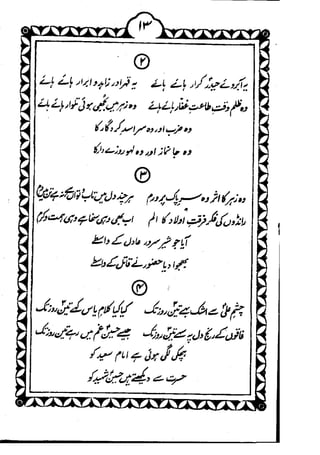 ۱۳
۲
یہ آبروئے حیدرِ کرار ہائے ہائے یہ قہر اور زاہد و ابرار ہائے ہائے
وہ ظلم وقتِ طاعتِ غفار ہائے ہائے وہ زہر میں بجھی ہوئی تلوار ہائے ہائے
وہ ضرب اور وہ سر اسد کردگار کا
وہ جانماز اور وہ لہو روزے دار کا
۳
وہ زہر کا اثر وہ سر پاک پر ورم ہر چند دل میں تاب و تواں
رانڈوں کی فکر فرقتِ اولاد کا الم اب بھی وہی سخا ہے وہی ہمت و کرم
آیا جو شیر سرور عادل کے واسطے
بھجوا دیا حضور نے قاتل کے واسطے
۴
چشمِ علیؑ سے اشک بہے تین روز تک کیا کیا کلام یاس کے کہے تین روز تک
فاقوں کے رنج دل پہ سہے تین روز تک جیسے حسینؑ میں رہے تین روز تک
ہچکی لگی ہوئی ہے امام سعید کو
حسرت سے دیکھتے ہیں حسینؑ شہید کو